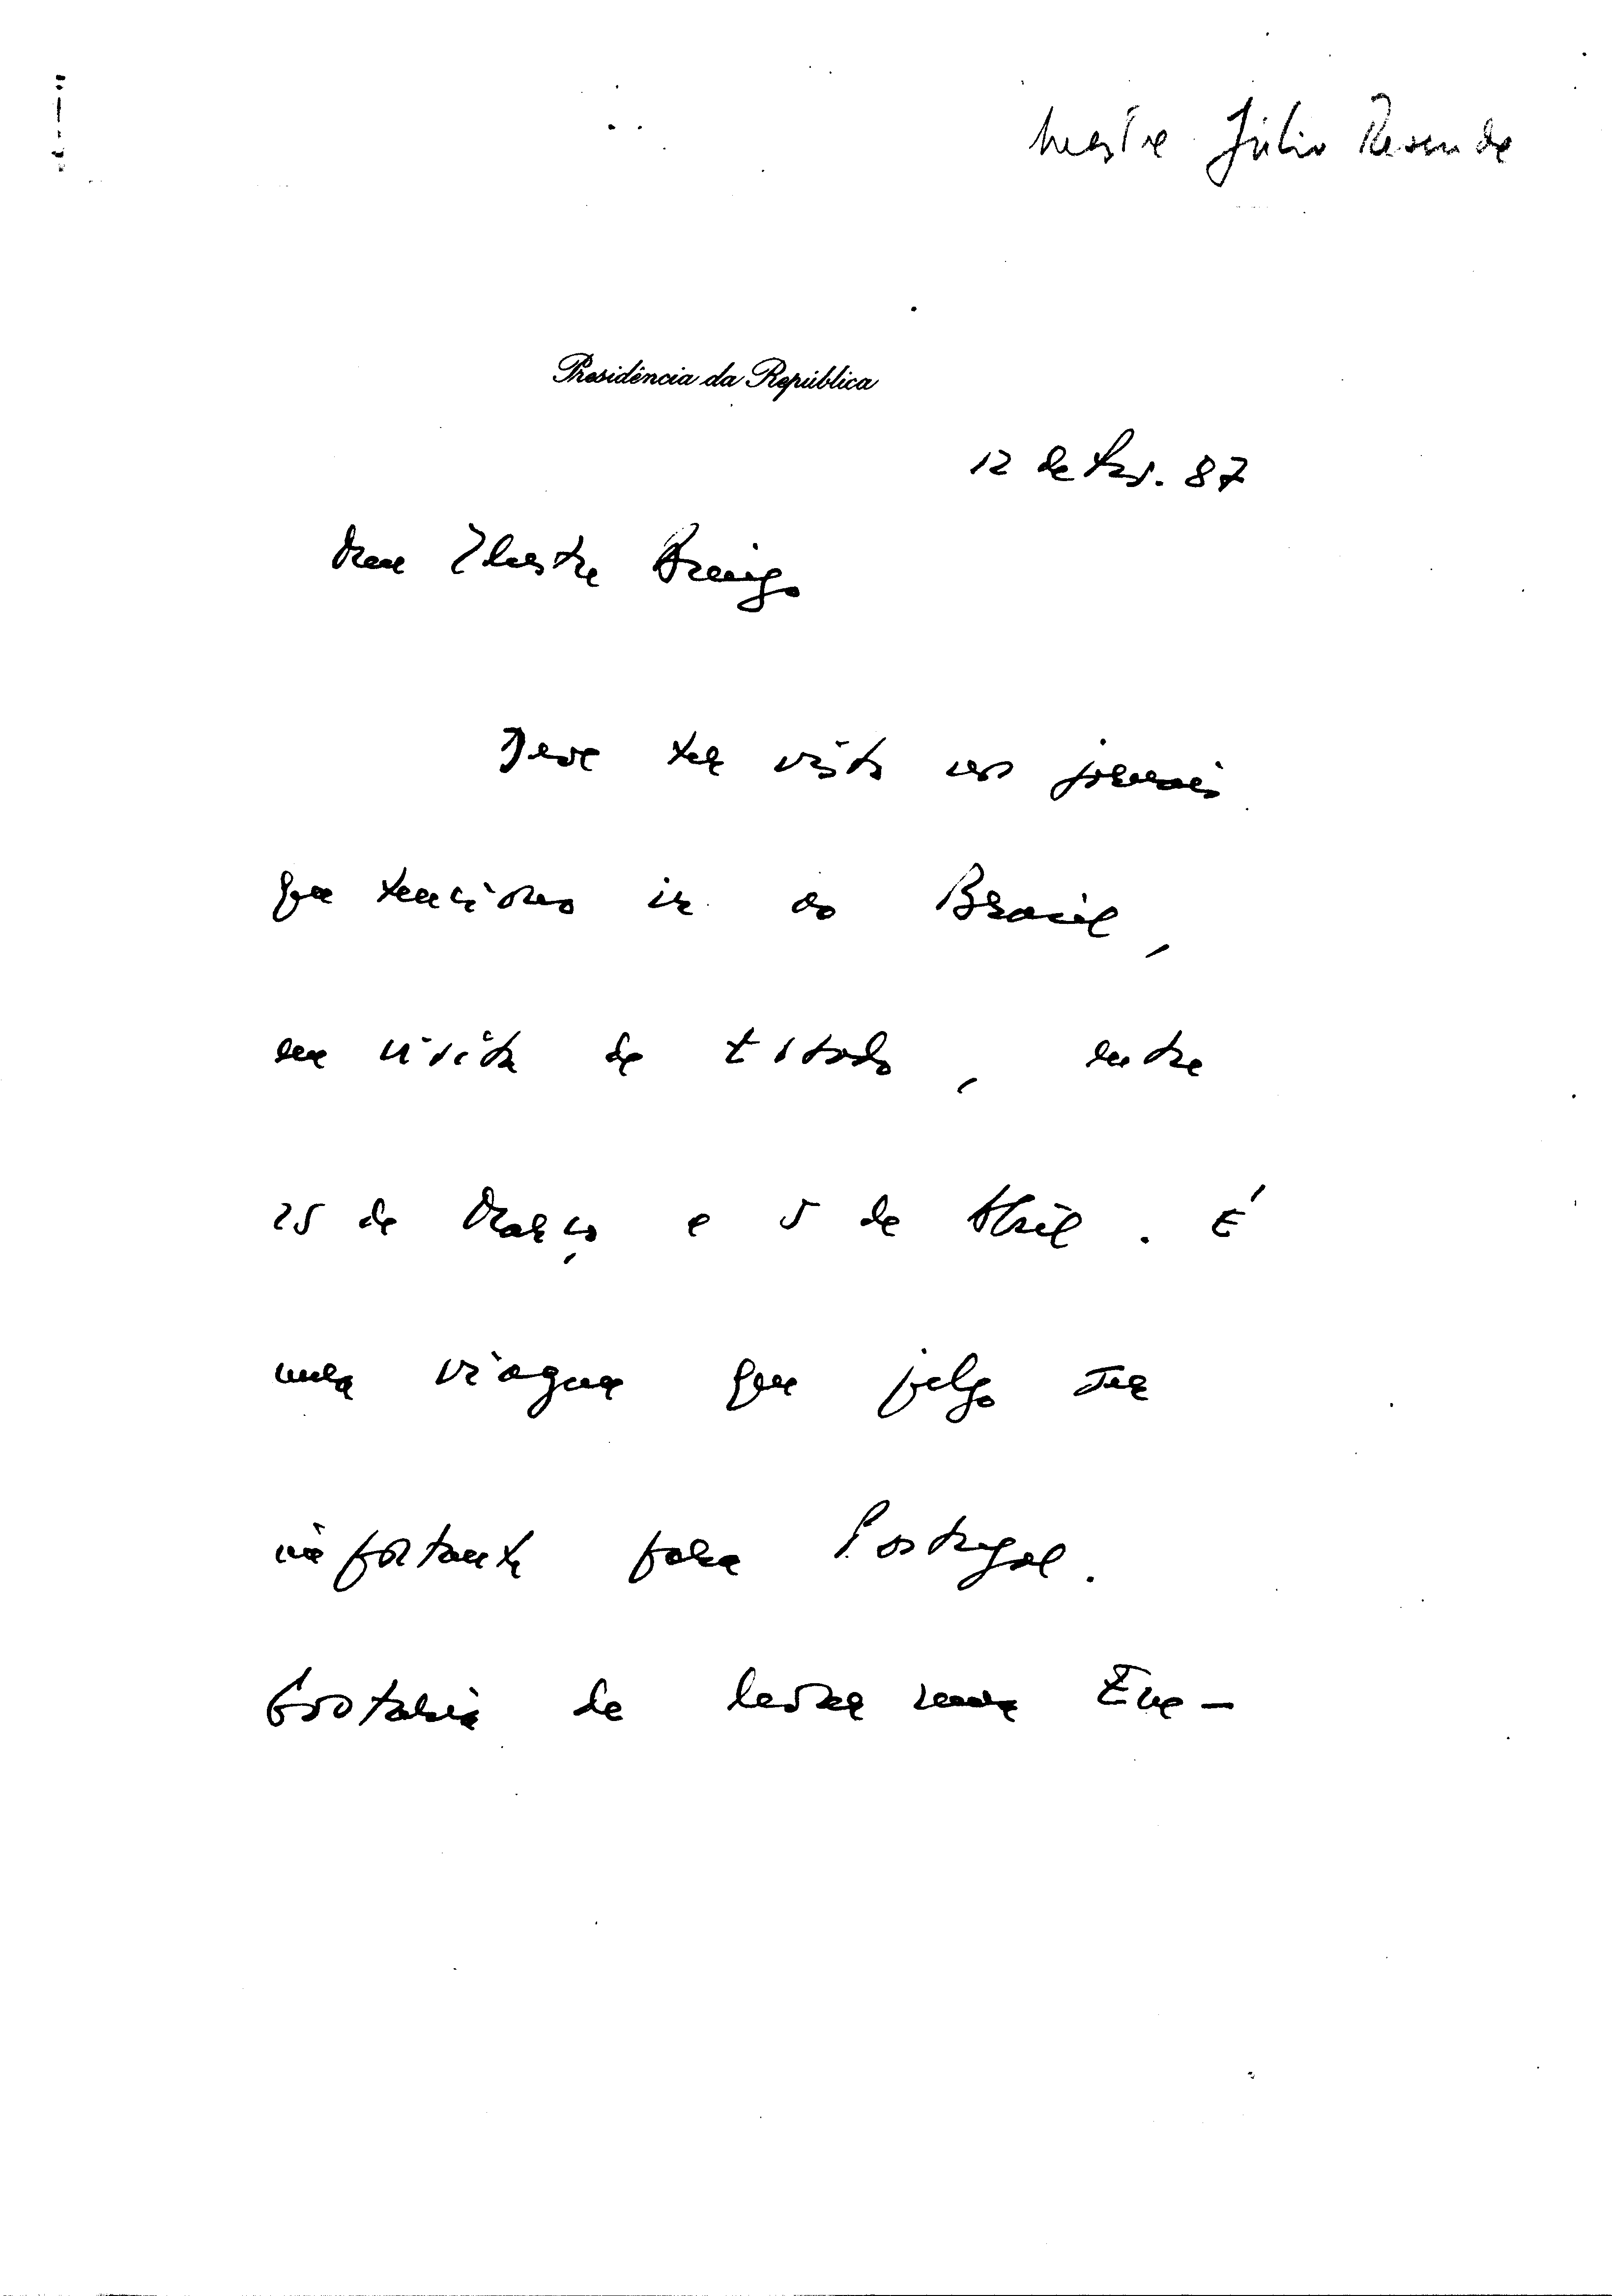 Mestre Júlio Resende
Presidência da República
12 de Fev. 87
Meu Ilustre Amigo
Deve ter visto nos jornais
que tenciono ir ao Brasil,
em visita de Estado, entre
25 de Março e 5 de Abril. É
uma viagem que julgo ser
importante para Portugal.
Gostaria de levar